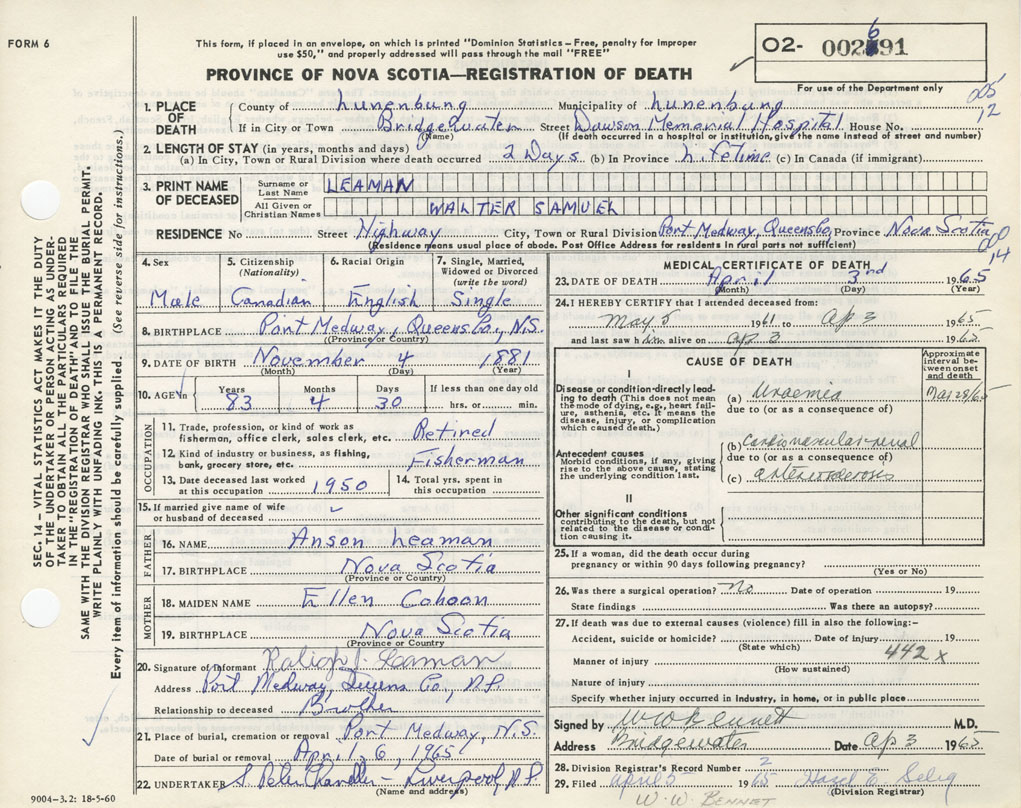 FORM 6
This form, if placed in an envelope, on which is printed "Dominion Statistics – Free, penalty for improper
use $50," and properly addressed will pass through the mail "FREE"
PROVINCE OF NOVA SCOTIA—REGISTRATION OF DEATH
02- 002691
For use of the Department only
005
12
1. PLACE OF DEATH
County of Lunenburg Municipality of Lunenburg
If in City or Town Bridgewater Street Dawson Memorial Hospital House No.
(Name) (If death occurred in a hospital or institution, give the name instead of street and number)
2. LENGTH OF STAY (in years, months and days)
(a) In City, Town or Rural Division where death occurred 2 Days (b) In Province Lifetime (c) In Canada (if immigrant)
3. PRINT NAME OF DECEASED
Surname or Last Name LEAMAN
All Given or Christian Names WALTER SAMUEL
RESIDENCE No Street Highway City, Town or Rural Division Port Medway, Queens Co, Province Nova Scotia
(Residence means usual place of abode. Post Office Address for residents in rural parts not sufficient)
000
14
4. Sex
Male
5. Citizenship (Nationality)
Canadian
6. Racial Origin
English
7. Single, Married, Widowed or Divorced (write the word)
Single
8. BIRTHPLACE Port Medway, Queens Co., N.S.
(Province or Country)
9. DATE OF BIRTH November 4 1881
(Month) (Day) (Year)
10. AGE in Years 83 Months 4 Days 30 If less than one day old hrs. or min.
OCCUPATION
11. Trade, profession, or kind of work as fisherman, office clerk, sales clerk, etc. Retired
12. Kind of industry or business, as fishing, bank, grocery store, etc. Fisherman
13. Date deceased last worked at this occupation 1950
14. Total yrs. spent in this occupation
15. If married give name of wife or husband of deceased
FATHER
16. NAME Anson Leaman
17. BIRTHPLACE Nova Scotia
(Province or Country)
MOTHER
18. MAIDEN NAME Ellen Cohoon
19. BIRTHPLACE Nova Scotia
(Province or Country)
20. Signature of informant Ralign J. Leaman
Address Port Medway, Queens Co., N.S.
Relationship to deceased Brother
21. Place of burial, cremation or removal Port Medway, N.S.
Date of burial or removal April 6, 1965
22. UNDERTAKER S. Peter Chandler – Liverpool, N.S.
(Name and address)
9004–3.2: 18-5-60
MEDICAL CERTIFICATE OF DEATH
23. DATE OF DEATH April 3rd 1965
(Month) (Day) (Year)
24. I HEREBY CERTIFY that I attended deceased from:
May 5 1961 to Ap 3 1965
and last saw him alive on Ap 3 1965
CAUSE OF DEATH
Approximate interval between onset and death
I
Disease or condition directly leading to death (This does not mean the mode of dying, e.g., heart failure, asthenia, etc. It means the disease, injury, or complication which caused death.)
(a) Uraemia Mar 28/65
due to (or as a consequence of)
Antecedent causes
Morbid conditions, if any, giving rise to the above cause, stating the underlying condition last.
(b) Cardiovascular-renal
due to (or as a consequence of)
(c) arteriosclerosis
II
Other significant conditions
contributing to the death, but not related to the disease or condition causing it.
25. If a woman, did the death occur during
pregnancy or within 90 days following pregnancy?
(Yes or No)
26. Was there a surgical operation? No Date of operation 19
State findings Was there an autopsy?
27. If death was due to external causes (violence) fill in also the following:–
Accident, suicide or homicide? Date of injury 19
(State which)
442 x
Manner of injury
(How sustained)
Nature of injury
Specify whether injury occurred in industry, in home, or in public place
Signed by W W Bennett M.D.
Address Bridgewater Date Ap 3 1965
28. Division Registrar's Record Number 2
29. Filed April 5 1965 Hazel E. Selig
(Division Registrar)
W. W. BENNET
SEC. 14 – VITAL STATISTICS ACT MAKES IT THE DUTY
OF THE UNDERTAKER OR PERSON ACTING AS UNDER-
TAKER TO OBTAIN ALL THE PARTICULARS REQUIRED
IN THE "REGISTRATION OF DEATH" AND TO FILE THE
SAME WITH THE DIVISION REGISTRAR WHO SHALL ISSUE THE BURIAL PERMIT.
WRITE PLAINLY WITH UNFADING INK. THIS IS A PERMANENT RECORD.
Every item of information should be carefully supplied. (See reverse side for instructions.)